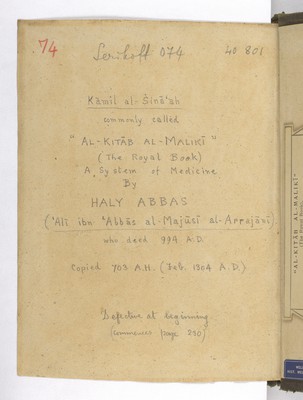 74
Serikoff 074
40 801
Kāmil al-Ṣinā'ah
commonly called
"AL-KITĀB AL-MALIKĪ"
(The Royal Book)
A System of Medicine
By
HALY ABBAS
('Alī ibn 'Abbās al-Majūsī al-Arrajānī)
who died 994 A.D.
Copied 703 A.H. (Feb. 1304 A.D.)
Defective at beginning
(commences page 290)
"AL-KITĀB AL MALIKĪ"